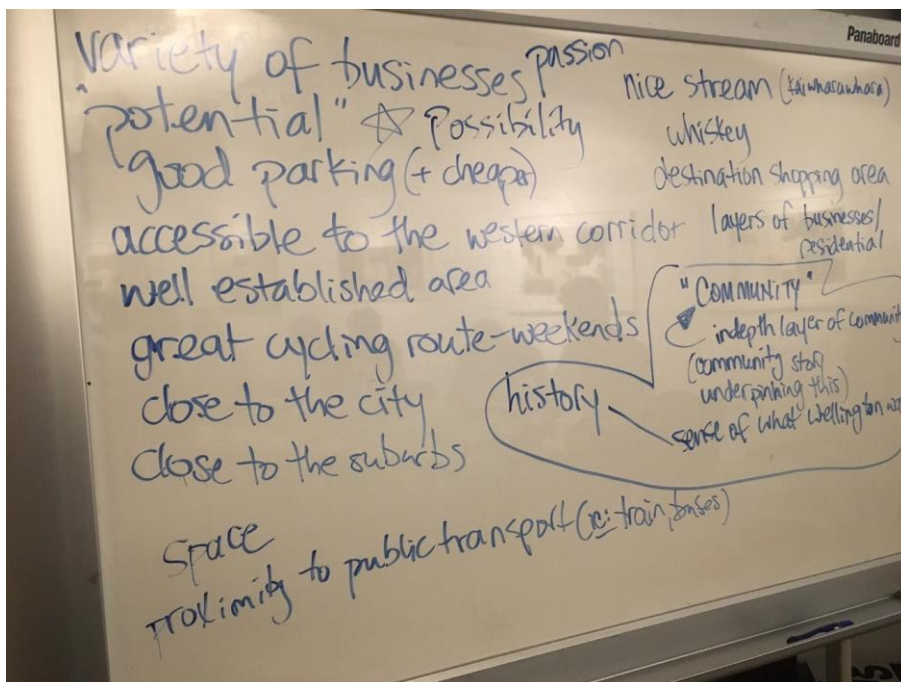 Panaboard
variety of businesses
passion
"potential" ☆ Possibility
good parking (+ cheaper)
accessible to the western corridor
well established area
great cycling route-weekends
close to the city
close to the suburbs
space
proximity to public transport (ie: train, buses)
nice stream (Kaiwharawhara)
whiskey
destination shopping area
layers of businesses/
residential
"COMMUNITY"
indepth layer of
(community story
underpinning this)
history
sense of what Wellington